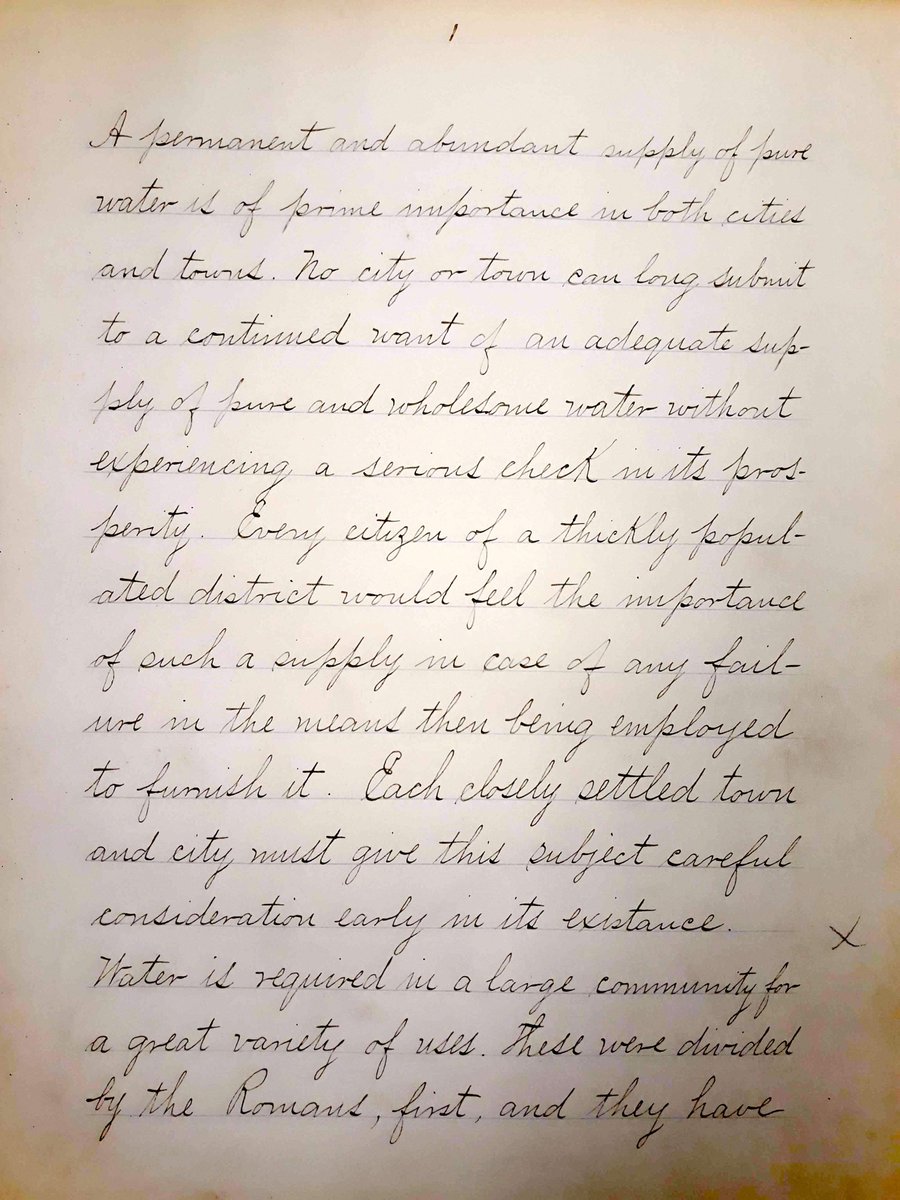 1
A permanent and abundant supply of pure
water is of prime importance in both cities
and towns. No city or town can long submit
to a continued want of an adequate sup-
ply of pure and wholesome water without
experiencing a serious check in its pros-
perity. Every citizen of a thickly popul-
ated district would feel the importance
of such a supply in case of any fail-
ure in the means then being employed
to furnish it. Each closely settled town
and city must give this subject careful
consideration early in its existance.
X
Water is required in a large community for
a great variety of uses. These were divided
by the Romans, first, and they have